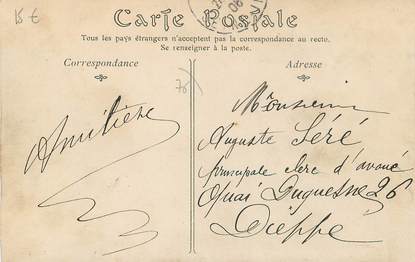 15 €
Carte Postale
Tous les pays étrangers n'acceptent pas la correspondance au recto.
Se renseigner à la poste.
Correspondance
Adresse
Monsieur
Auguste Séré
principale clerc d'avoué
Quai Duquesne 26
Dieppe